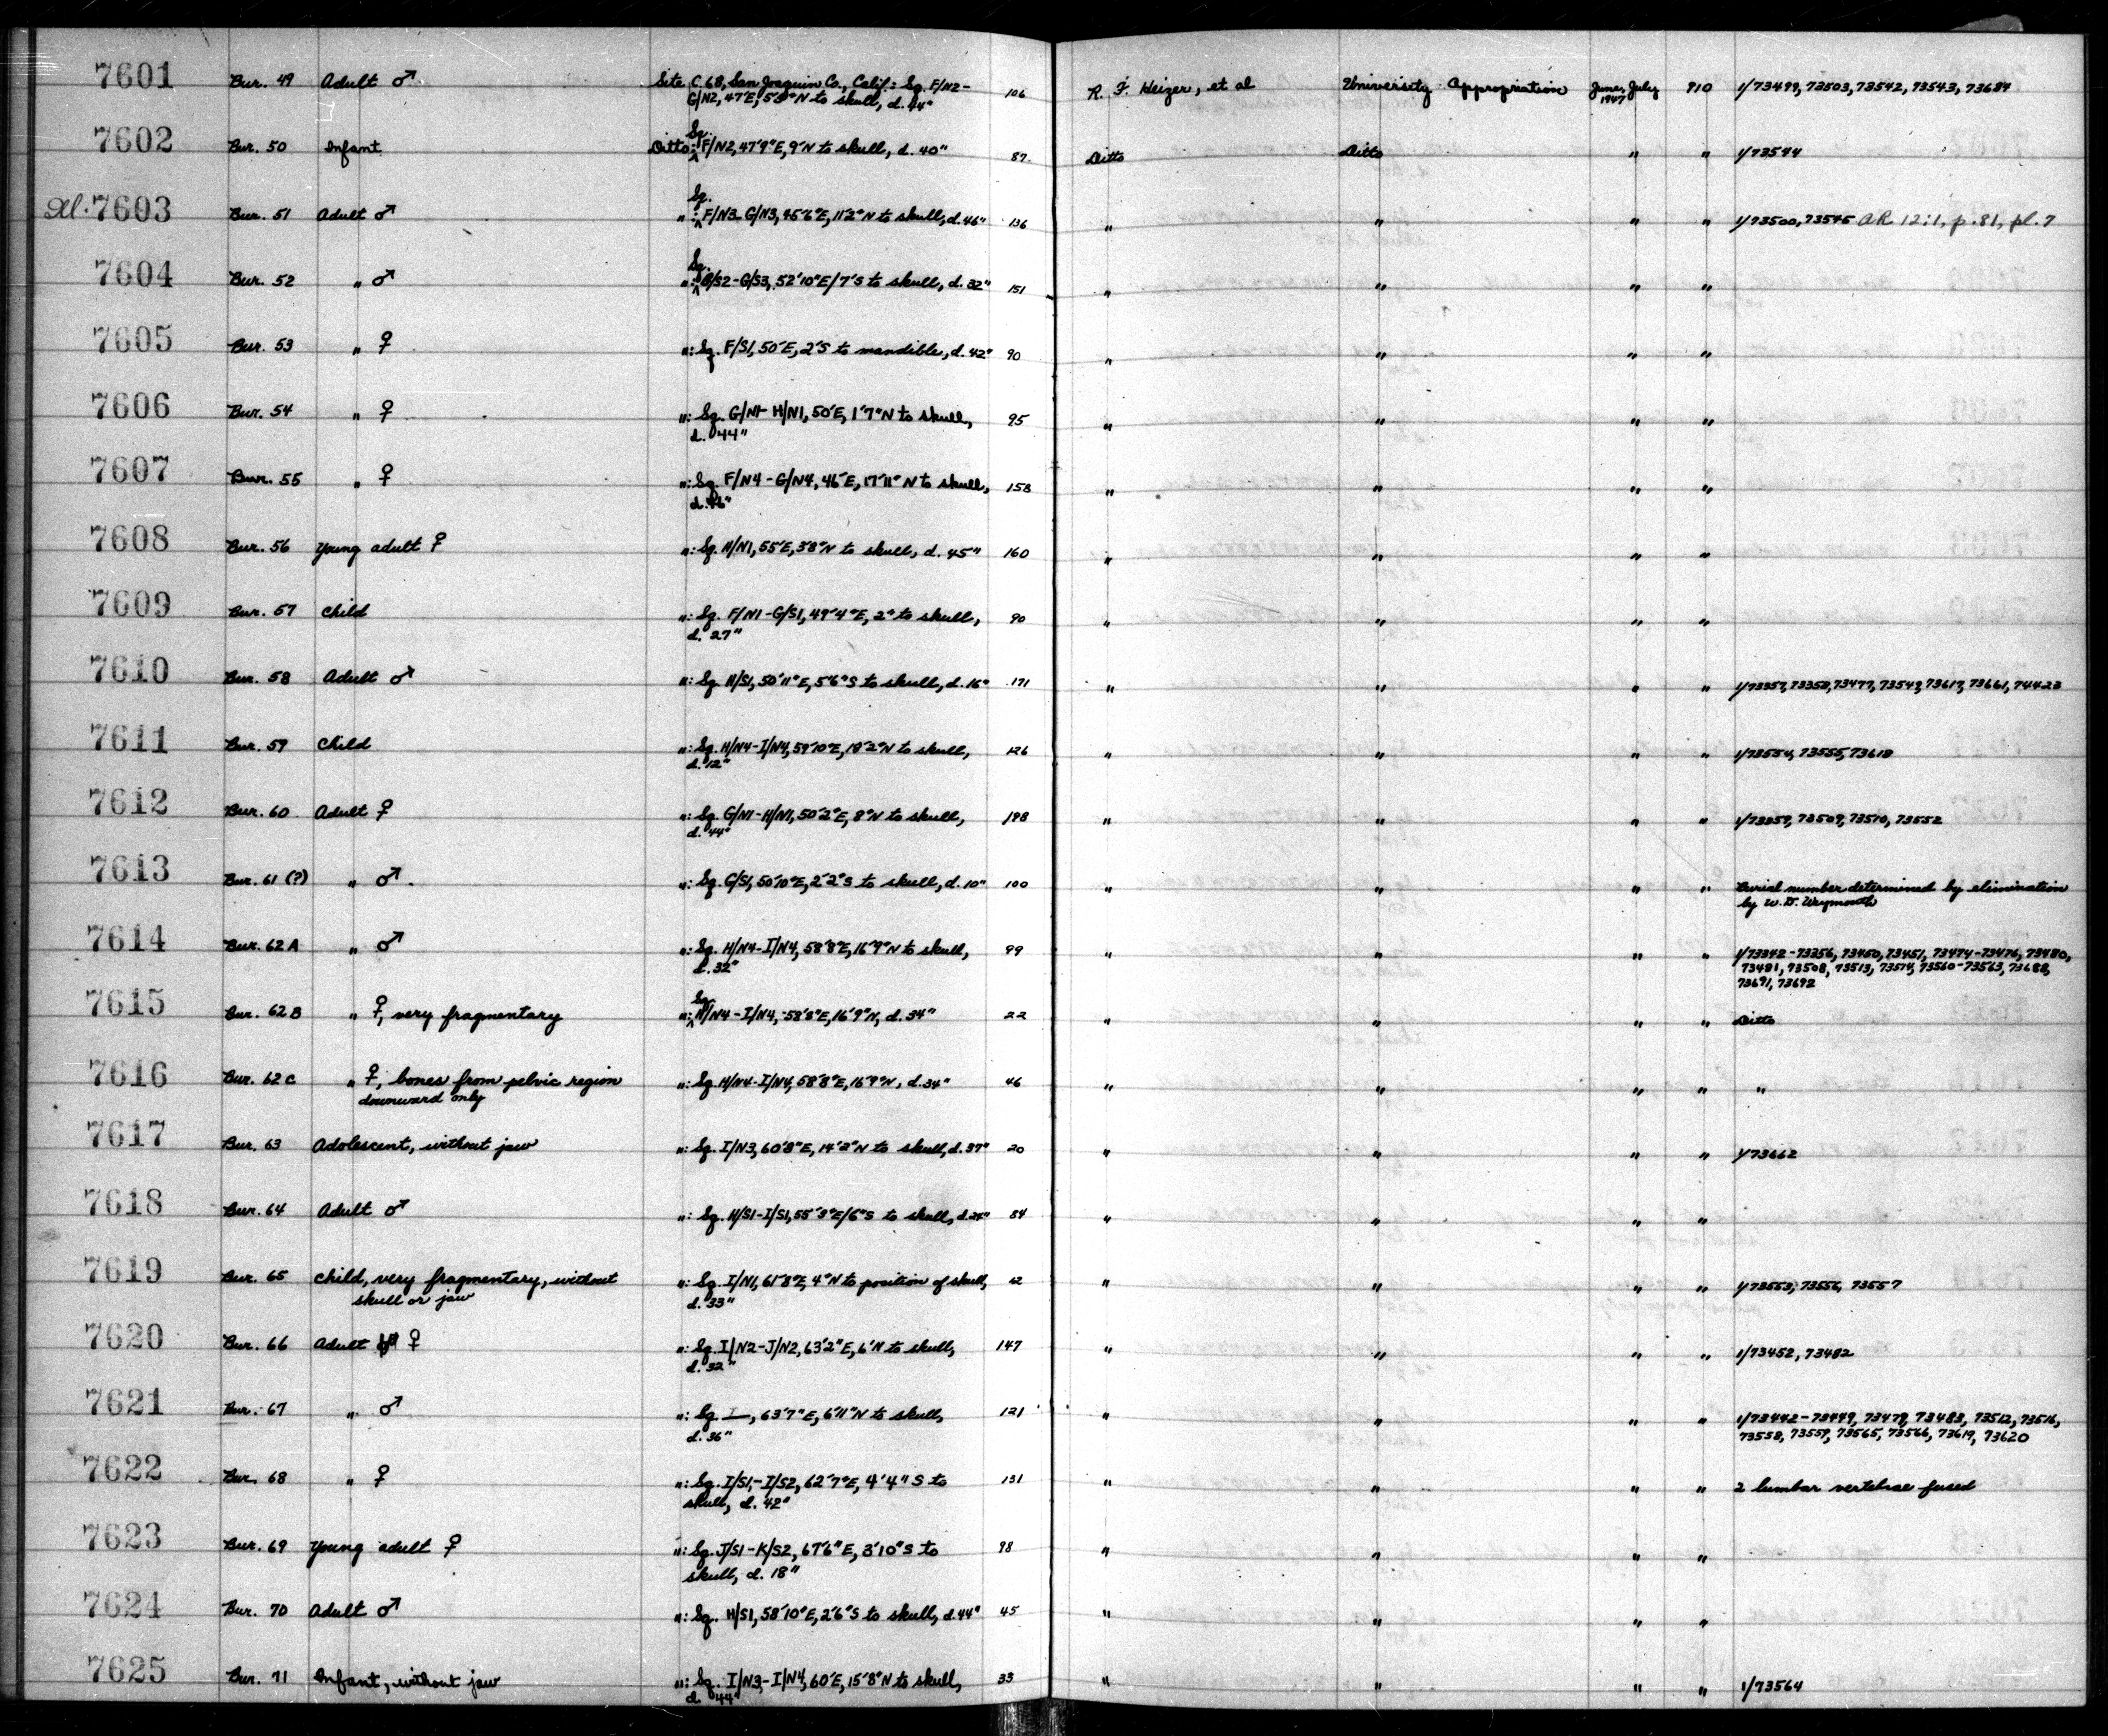 7601 Bur. 49 Adult ♂ Site C.68, San Joaquin Co., Calif.: Sq. F/N2-
G/N2, 47'E, 5'8"N to skull, d. 44" 106 R. F. Heizer, et al University Appropriation June, July 1947 910 1/73499, 73503, 73542, 73543, 73684
7602 Bur. 50 Infant Ditto: Sq. F/N2, 47'9"E, 9'N to skull, d. 40" 87 Ditto Ditto " " 1/73544
Del. 7603 Bur. 51 Adult ♂ ": Sq. F/N3-G/N3, 45'6"E, 11'2"N to skull, d. 46" 136 " " " " 1/73500, 73545 AR 12:1, p. 81, pl. 7
7604 Bur. 52 " ♂ ": Sq. G/S2-G/S3, 52'10"E/7'S to skull, d. 32" 151 " " " "
7605 Bur. 53 " ♀ ": Sq. F/S1, 50'E, 2'S to mandible, d. 42" 90 " " " "
7606 Bur. 54 " ♀ ": Sq. G/N1-H/N1, 50'E, 1'7"N to skull,
d. 44" 95 " " " "
7607 Bur. 55 " ♀ ": Sq. F/N4-G/N4, 46'E, 17'11"N to skull,
158 " " " "
7608 Bur. 56 Young adult ♀ ": Sq. H/N1, 55'E, 3'8"N to skull, d. 45" 160 " " " "
7609 Bur. 57 Child ": Sq. F/N1-G/S1, 49'4"E, 2" to skull,
d. 27" 90 " " " "
7610 Bur. 58 Adult ♂ ": Sq. H/S1, 50'11"E, 5'6"S to skull, d. 16" 171 " " " " 1/73357, 73358, 73477, 73617, 73661, 74423
7611 Bur. 59 Child ": Sq. H/N4-I/N4, 59'10"E, 18'2"N to skull,
d. 12" 126 " " " " 1/73554, 73555, 73618
7612 Bur. 60 Adult ♀ ": Sq. G/N1-H/N1, 50'2"E, 8"N to skull,
d. 44" 198 " " " " 1/73359, 73509, 73510, 73552
7613 Bur. 61 (?) " ♂ ": Sq. G/S1, 50'10"E, 2'2"S to skull, d. 10" 100 " " " " Burial number determined by elimination
by W. D. Weymouth
7614 Bur. 62A " ♂ ": Sq. H/N4-I/N4, 58'8"E, 16'9"N to skull,
d. 32" 99 " " " " 1/73342-73356, 73450, 73451, 73474-73476, 73480,
73481, 73508, 73513, 73514, 73560-73563, 73688,
73691, 73692
7615 Bur. 62B " ♀, very fragmentary ": Sq. H/N4-I/N4, 58'8"E, 16'9"N, d. 34" 22 " " " " Ditto
7616 Bur. 62C " ♀, bones from pelvic region
downward only ": Sq. H/N4-I/N4, 58'8"E, 16'9"N, d. 34" 46 " " " " "
7617 Bur. 63 Adolescent, without jaw ": Sq. I/N3, 60'8"E, 14'2"N to skull, d. 37" 20 " " " " 1/73662
7618 Bur. 64 Adult ♂ ": Sq. H/S1-I/S1, 55'3"E/6"S to skull, d. 24" 84 " " " "
7619 Bur. 65 Child, very fragmentary, without
skull or jaw ": Sq. I/N1, 61'8"E, 4"N to position of skull,
d. 33" 62 " " " " 1/73553, 73556, 73557
7620 Bur. 66 Adult ♀ ": Sq. I/N2-J/N2, 63'2"E, 6'N to skull,
d. 32" 147 " " " " 1/73452, 73482
7621 Bur. 67 " ♂ ": Sq. I—, 63'7"E, 6'11"N to skull,
d. 36" 121 " " " " 1/73442-73449, 73479, 73483, 73512, 73516,
73558, 73559, 73565, 73566, 73619, 73620
7622 Bur. 68 " ♀ ": Sq. I/S1-I/S2, 62'7"E, 4'4"S to
skull, d. 42" 131 " " " " 2 lumbar vertebrae fused
7623 Bur. 69 Young adult ♀ ": Sq. J/S1-K/S2, 67'6"E, 3'10"S to
skull, d. 18" 98 " " " "
7624 Bur. 70 Adult ♂ ": Sq. H/S1, 58'10"E, 2'6"S to skull, d. 44" 45 " " " "
7625 Bur. 71 Infant, without jaw ": Sq. I/N3-I/N4, 60'E, 15'8"N to skull,
d. 44" 33 " " " " 1/73564